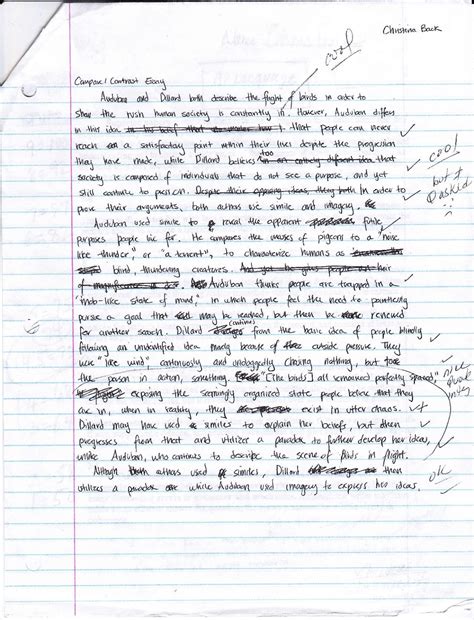 Christina Back
cool
Compare / Contrast Essay
Audubon and Dillard both describe the flight of birds in order to
show the rush human society is constantly in. However, Audubon differs
in this idea that people can never
reach a satisfactory point within their lives despite the progression
they have made, while Dillard believes too that
society is composed of individuals that do not see a purpose, and yet
still continue to In order to
prove their arguments, both authors use simile and imagery.
cool
but I
Audubon used simile to reveal the apparent futile
purposes people live for. He compares the masses of pigeons to a "noise
like thunder," or "a torrent", to characterize humans as
blind, thundering creatures.
Audubon thinks people are trapped in a
"mob-like state of mind," in which people feel the need to
pursue a goal that may be reached, but then be renewed
for another search. Dillard continues from the basic idea of people blindly
following an unidentified idea merely because of outside pressure. They
were "like wind", continuously and undoggedly chasing nothing, but to
the person in action, something. "[The birds] all remained perfectly spaced,"
nice
exposing the seemingly organized state people believe that they
are in, when in reality, they exist in utter chaos.
Dillard may have used similes to explain her beliefs, but then
progresses from that and utilizes a paradox to further develop her ideas,
unlike Audubon, who continues to describe the scene of birds in flight.
ok
both authors used similes, Dillard then
utilizes a paradox while Audubon used imagery to express her ideas.